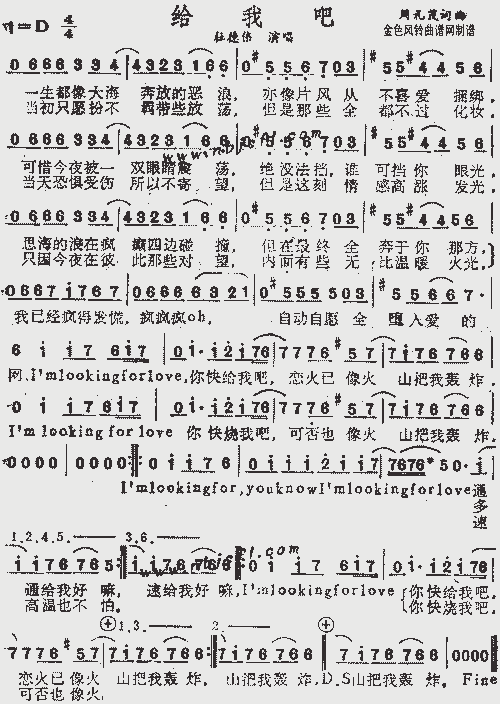 给我吧
1=D 4/4
杜德伟 演唱
周礼茂词曲
金色风铃曲谱网制谱
0 666 3 34 | 4323 1 66 | 0 #5 56 703 | #55 #4 456 |
一生都像大海 奔放的恶浪， 亦像片风从 不喜爱 捆绑，
当初只愿扮不 羁带些放荡， 但是那些全 都不过 化妆，
0 666 3 34 | 4323 1 66 | 0 #5 56 703 | #55 #4 456 |
可惜今夜被一 双眼睛 荡， 绝没法挡，谁 可挡你 眼光，
当天恐惧受伤 所以不寄望， 但是这刻情 感高涨 发光，
0 666 3 34 | 4323 1 66 | 0 #5 56 703 | #55 #4 456
思海的浪在疯 癫四边碰撞， 但在最终全 奔于你 那方，
只因今夜在彼 此那些对望， 内面有些无 比温暖 火光，
0667 i767 | 0666 6321 | 0 #555 503 | #55 667· |
我已经疯得发慌，疯疯疯oh， 自动自愿全 堕入爱 的
6 i i7 6i7 | 0 i· i2i76 | 7776 #57 | 7i76 766 |
网，I'mlookingforlove，你快给我吧， 恋火已 像火 山把我轰 炸，
0 i i7 6i7 | 0 i· i2i76 | 7776 #57 | 7i76 766
I'm looking for love 你 快烧我吧，可否也 像火 山把我轰 炸，
0000 | 0000 :‖: 0 i i76 | 0iii2ii7 | 7676* 50· i
I'mlookingfor,youknowI'mlookingforlove 通
多
速
1,2,4,5. 3,6.
ii76 765 :‖ ii76 766 :‖ 0 i i7 6i7 | 0i· i2i76
通给我好 嘛， 速给我好 嘛，I'mlookingforlove 你快给我吧，
高温也不 怕， 你快烧我吧，
1,3. 2.
7776 #57 | 7i76 766 :‖ 7i76 766 :‖ 7 i76 766 | 0000 ‖
恋火已像火 山把我轰 炸， 山把我轰 炸，D.S山把我轰 炸，Fine
可否也 像火